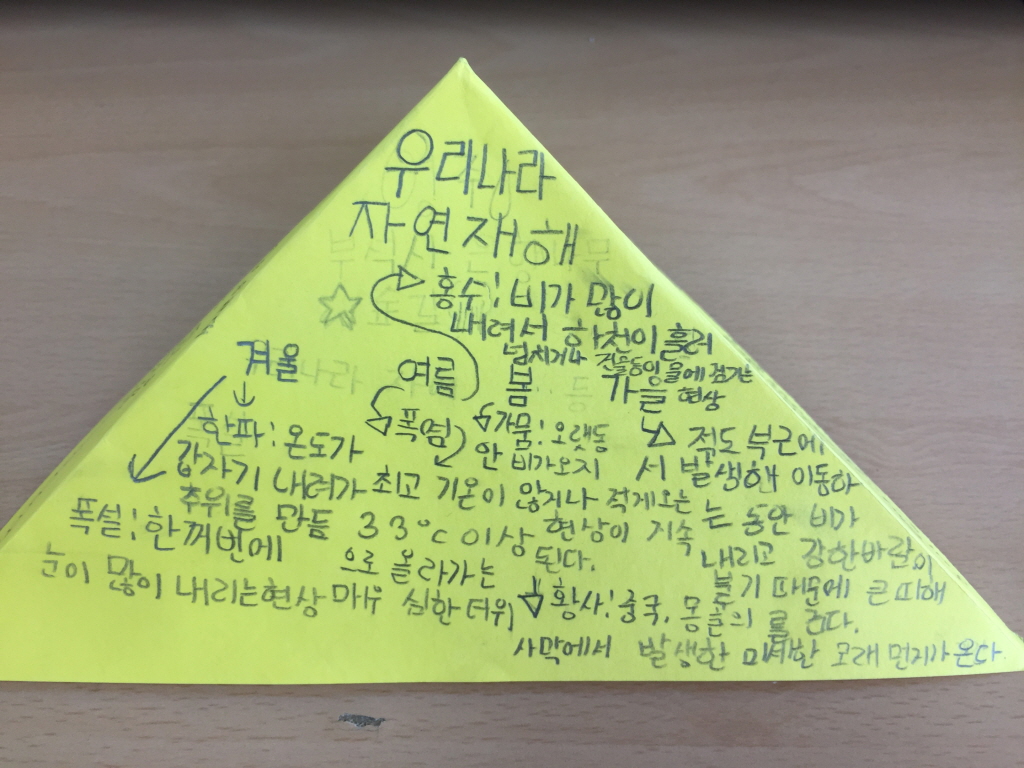 우리나라
자연재해
홍수: 비가 많이
내려서 하천이 흘러
넘치거나 건물등이 물에 잠기는
현상
겨울
한파: 온도가
갑자기 내려가
추위를 만듬
폭설: 한꺼번에
눈이 많이 내리는현상
여름
폭염
최고 기온이
33°C 이상
으로 올라가는
매우 심한 더위
봄
가뭄: 오랫동
안 비가오지
않거나 적게오는
현상이 지속
된다.
황사: 중국, 몽골의
사막에서 발생한 미세한 모래 먼지가 온다
가을
적도 부근에
서 발생해 이동하
는 동안 비가
내리고 강한바람이
불기 때문에 큰 피해
를 준다.